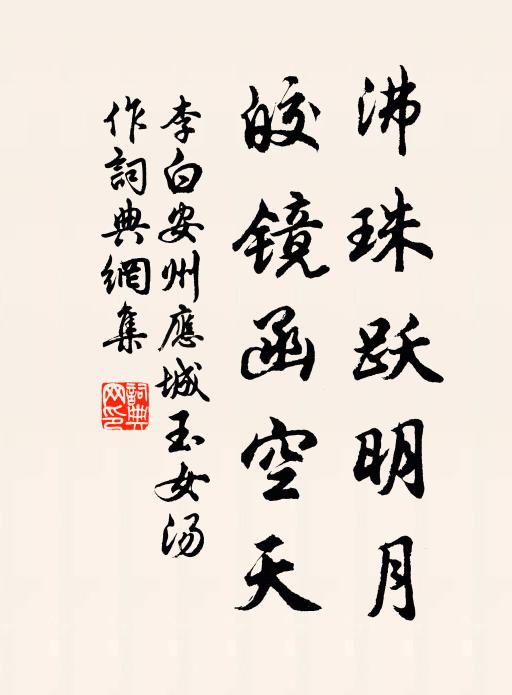 沸珠跃明月
皎镜函空天
李白安州應城玉女汤
作詞典網集
詞典网印